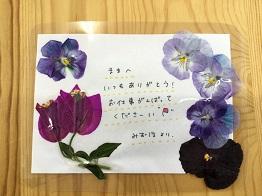 ままへ
いつもありがとう!
お仕事がんばって
くださーい
みおほより。